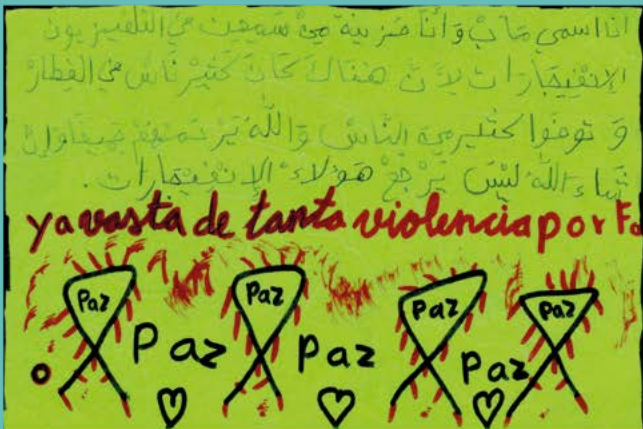 انا اسمي وَأَنَا حَزِينَة مِنْ سَمِعت في التلفيزيون
الإِنْفِيجَارات لِأَنَّ هنَاكَ كَانَ كَثِيرْ نَاسْ في القِطارْ
وَ توفوا كثير مِن النَّاسْ وَاللَّه يَرْحَمهُمْ جَمِيعًا وإنْ
شَاء اللَّه لَيْسَ يَرْجَعْ هَؤلَاءْ الإنْفيجَارات.
ya vasta de tanta violencia por Fa
Paz Paz Paz Paz
Paz Paz Paz